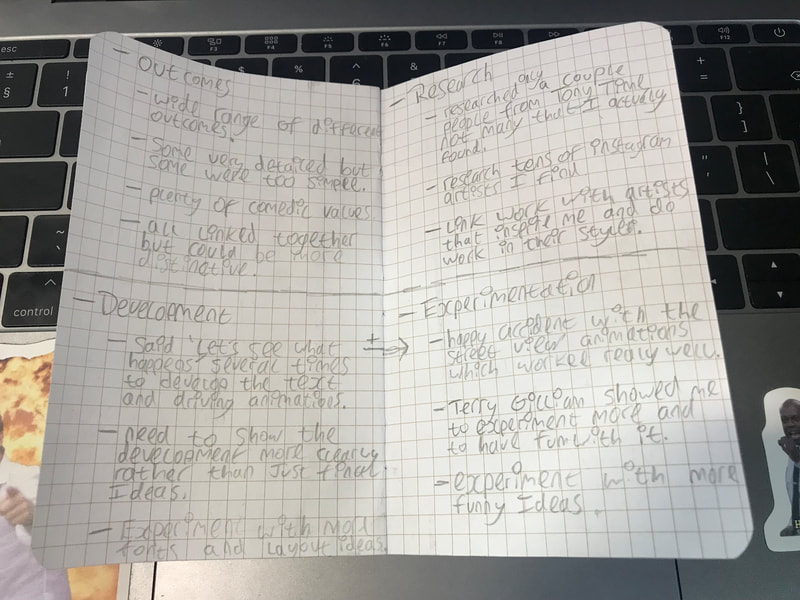 - Outcomes
- wide range of different
outcomes.
- Some very detailed but
some were too simple.
- plenty of comedic values
- all linked together
but could be more
distinative.
- Development
- Said 'Let's see what
happens' several times
to develop the text
and driving animations.
- need to show the
development more clearly
rather than just final
Ideas.
- Experiment with more
fonts and layout ideas.
+
- Research
- researched only a couple
people from Tony Time
not many that I actually
found.
- research tens of instagram
artists I find
- Link work with artists
that inspire me and do
work in their styles.
- Experimentation
- happy accident with the
street view animations
which worked really well.
- Terry Gilliam showed me
to experiment more and
to have fun with it.
- experiment with more
funny Ideas.
esc
F3
F4
F5
F6
F7
F8
F9
F12
±
§
!
1
$
%
^
6
&
+
=
}
]
"
'
|
\
~
`
control